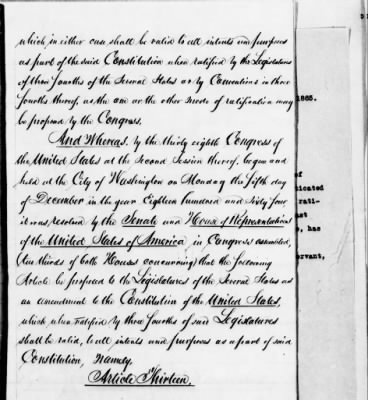 which in either case shall be valid to all intents and purposes
as part of the said Constitution when ratified by the Legislatures
of three fourths of the Several States or by Conventions in three
fourths thereof, as the one or the other mode of ratification may
be proposed by the Congress.
And Whereas, by the thirty eighth Congress of
the United States at the Second Session thereof, begun and
held at the City of Washington on Monday the fifth day
of December in the year Eighteen hundred and sixty four
it was resolved by the Senate and House of Representatives
of the United States of America, in Congress assembled,
(two thirds of both Houses concurring) that the following
Article be proposed to the Legislatures of the Several States as
an amendment to the Constitution of the United States,
which when ratified by three fourths of said Legislatures
shall be valid, to all intents and purposes as a part of said
Constitution, namely,
Article Thirteen.
1865.
of
nicated
rati-
, has
ervant,